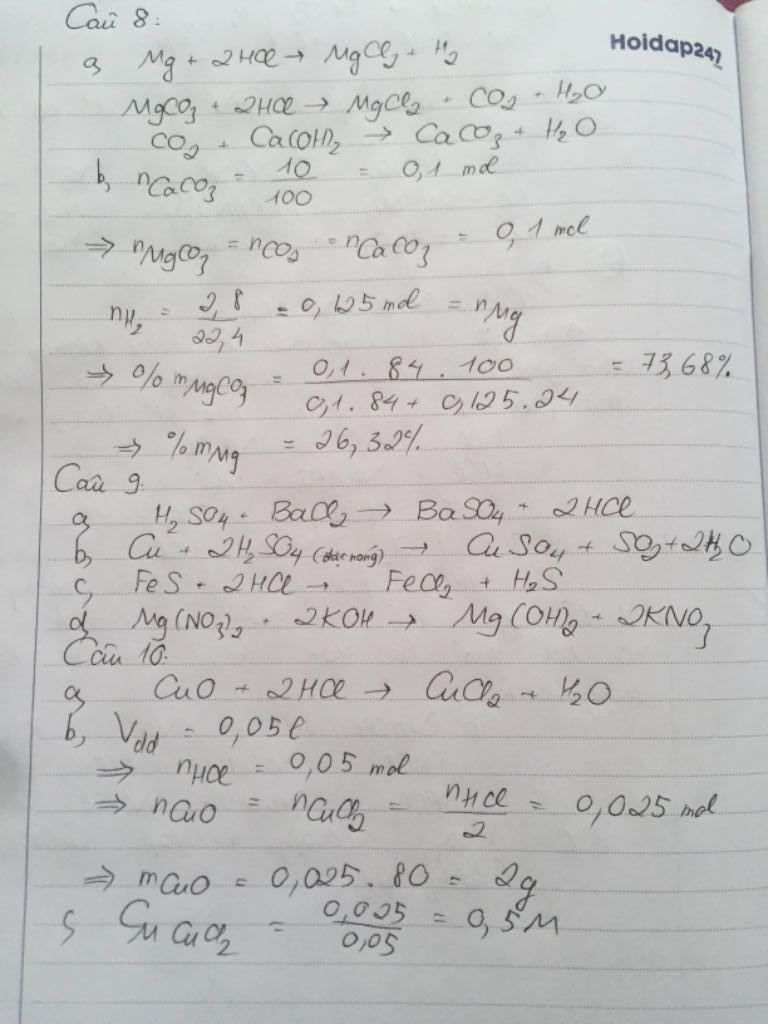 Câu 8:
Hoidap247
a, Mg + 2HCl → MgCl₂ + H₂
MgCO₃ + 2HCl → MgCl₂ + CO₂ + H₂O
CO₂ + Ca(OH)₂ → CaCO₃ + H₂O
b, nCaCO₃ = 10/100 = 0,1 mol
⇒ nMgCO₃ = nCO₂ = nCaCO₃ = 0,1 mol
nH₂ = 2,8/22,4 = 0,125 mol = nMg
⇒ % mMgCO₃ = 0,1 . 84 . 100 / 0,1 . 84 + 0,125 . 24 = 73,68%
⇒ % mMg = 26,32%
Câu 9:
a, H₂SO₄ + BaCl₂ → BaSO₄ + 2HCl
b, Cu + 2H₂SO₄ (đặc nóng) → CuSO₄ + SO₂ + 2H₂O
c, FeS + 2HCl → FeCl₂ + H₂S
d, Mg(NO₃)₂ + 2KOH → Mg(OH)₂ + 2KNO₃
Câu 10:
a, CuO + 2HCl → CuCl₂ + H₂O
b, Vdd = 0,05 l
⇒ nHCl = 0,05 mol
⇒ nCuO = nCuCl₂ = nHCl/2 = 0,025 mol
⇒ mCuO = 0,025 . 80 = 2g
c, CM CuCl₂ = 0,025/0,05 = 0,5M